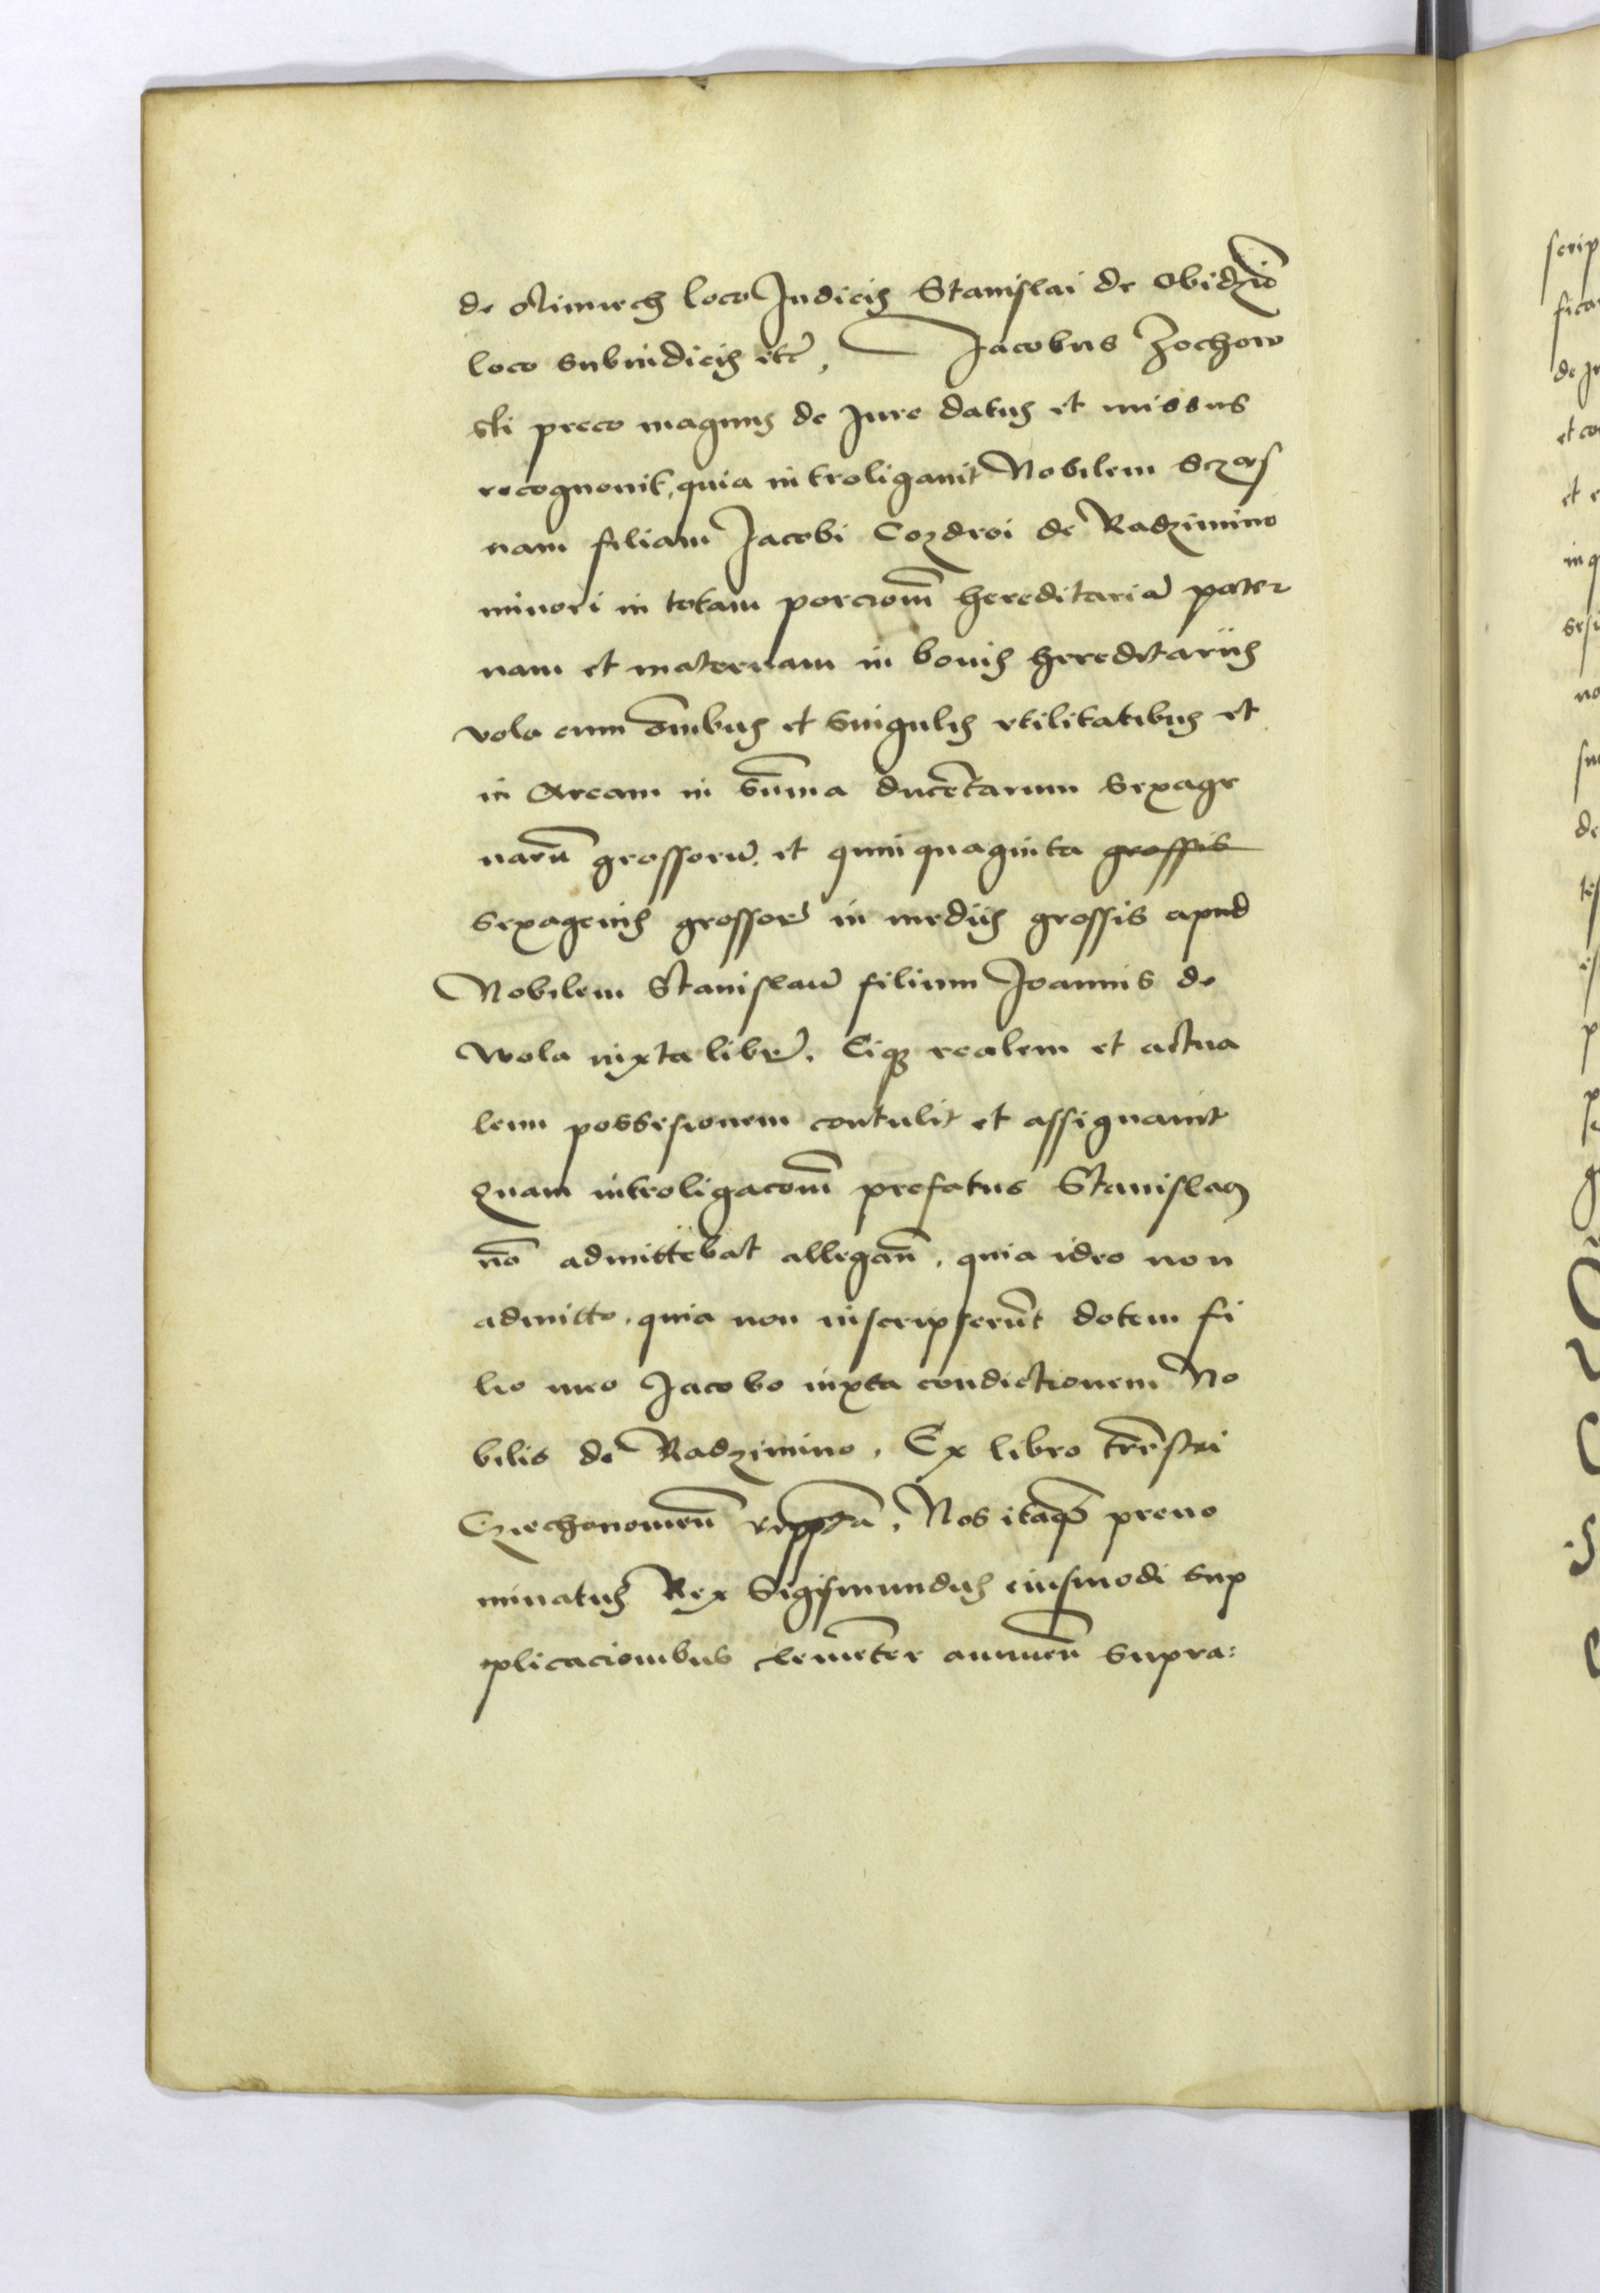 de Nimirch loco Judicis Stanislai de Obidzīo
loco subiudicis etc, Jacobus Zochow
ski preco magnus de Jure datus et missus
recognovit, quia introligavit Nobilem Szczes
nam filiam Jacobi Cozdroi de Radzimino
minori in totam porcioñ hereditariā pater
nam et maternam in bonis hereditariis
vola cum ōmibus et singulis vtilitatibus et
in Aream in sūma ducētarum sexage
narū grossorū, et quinquaginta grossis
sexagenis grossorū in mediis grossis apud
Nobilem Stanislaū filium Joannis de
Wola iuxta librū. Eiq realem et actua
lem possesionem contulit et assignavit
Quam introligacoñ prefatus Stanislaus
nō admittebat allegañ, quia ideo non
admitto, quia non inscripserūt dotem fi
lio meo Jacobo iuxta condictionem No
bilis de Radzimino, Ex libro trr̄stri
Czechonomeñ Nos itaq preno
minatus Rex Sigismundus eiusmodi sup
plicacionibus clemēter annueñ supra:
scrip
fica
de
et co
et
in
no
de
p
p